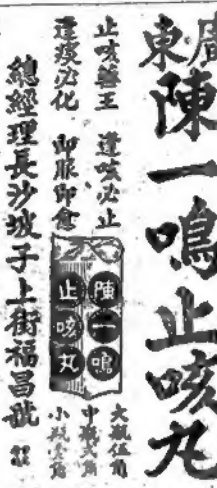 廣東
陳一鳴止咳丸
止咳聖王 逢咳必止
逢痰必化 即服即愈
陳一鳴
止咳丸
大瓶伍角
中瓶弍角
小瓶壹角
總經理長沙坡子上街福昌號